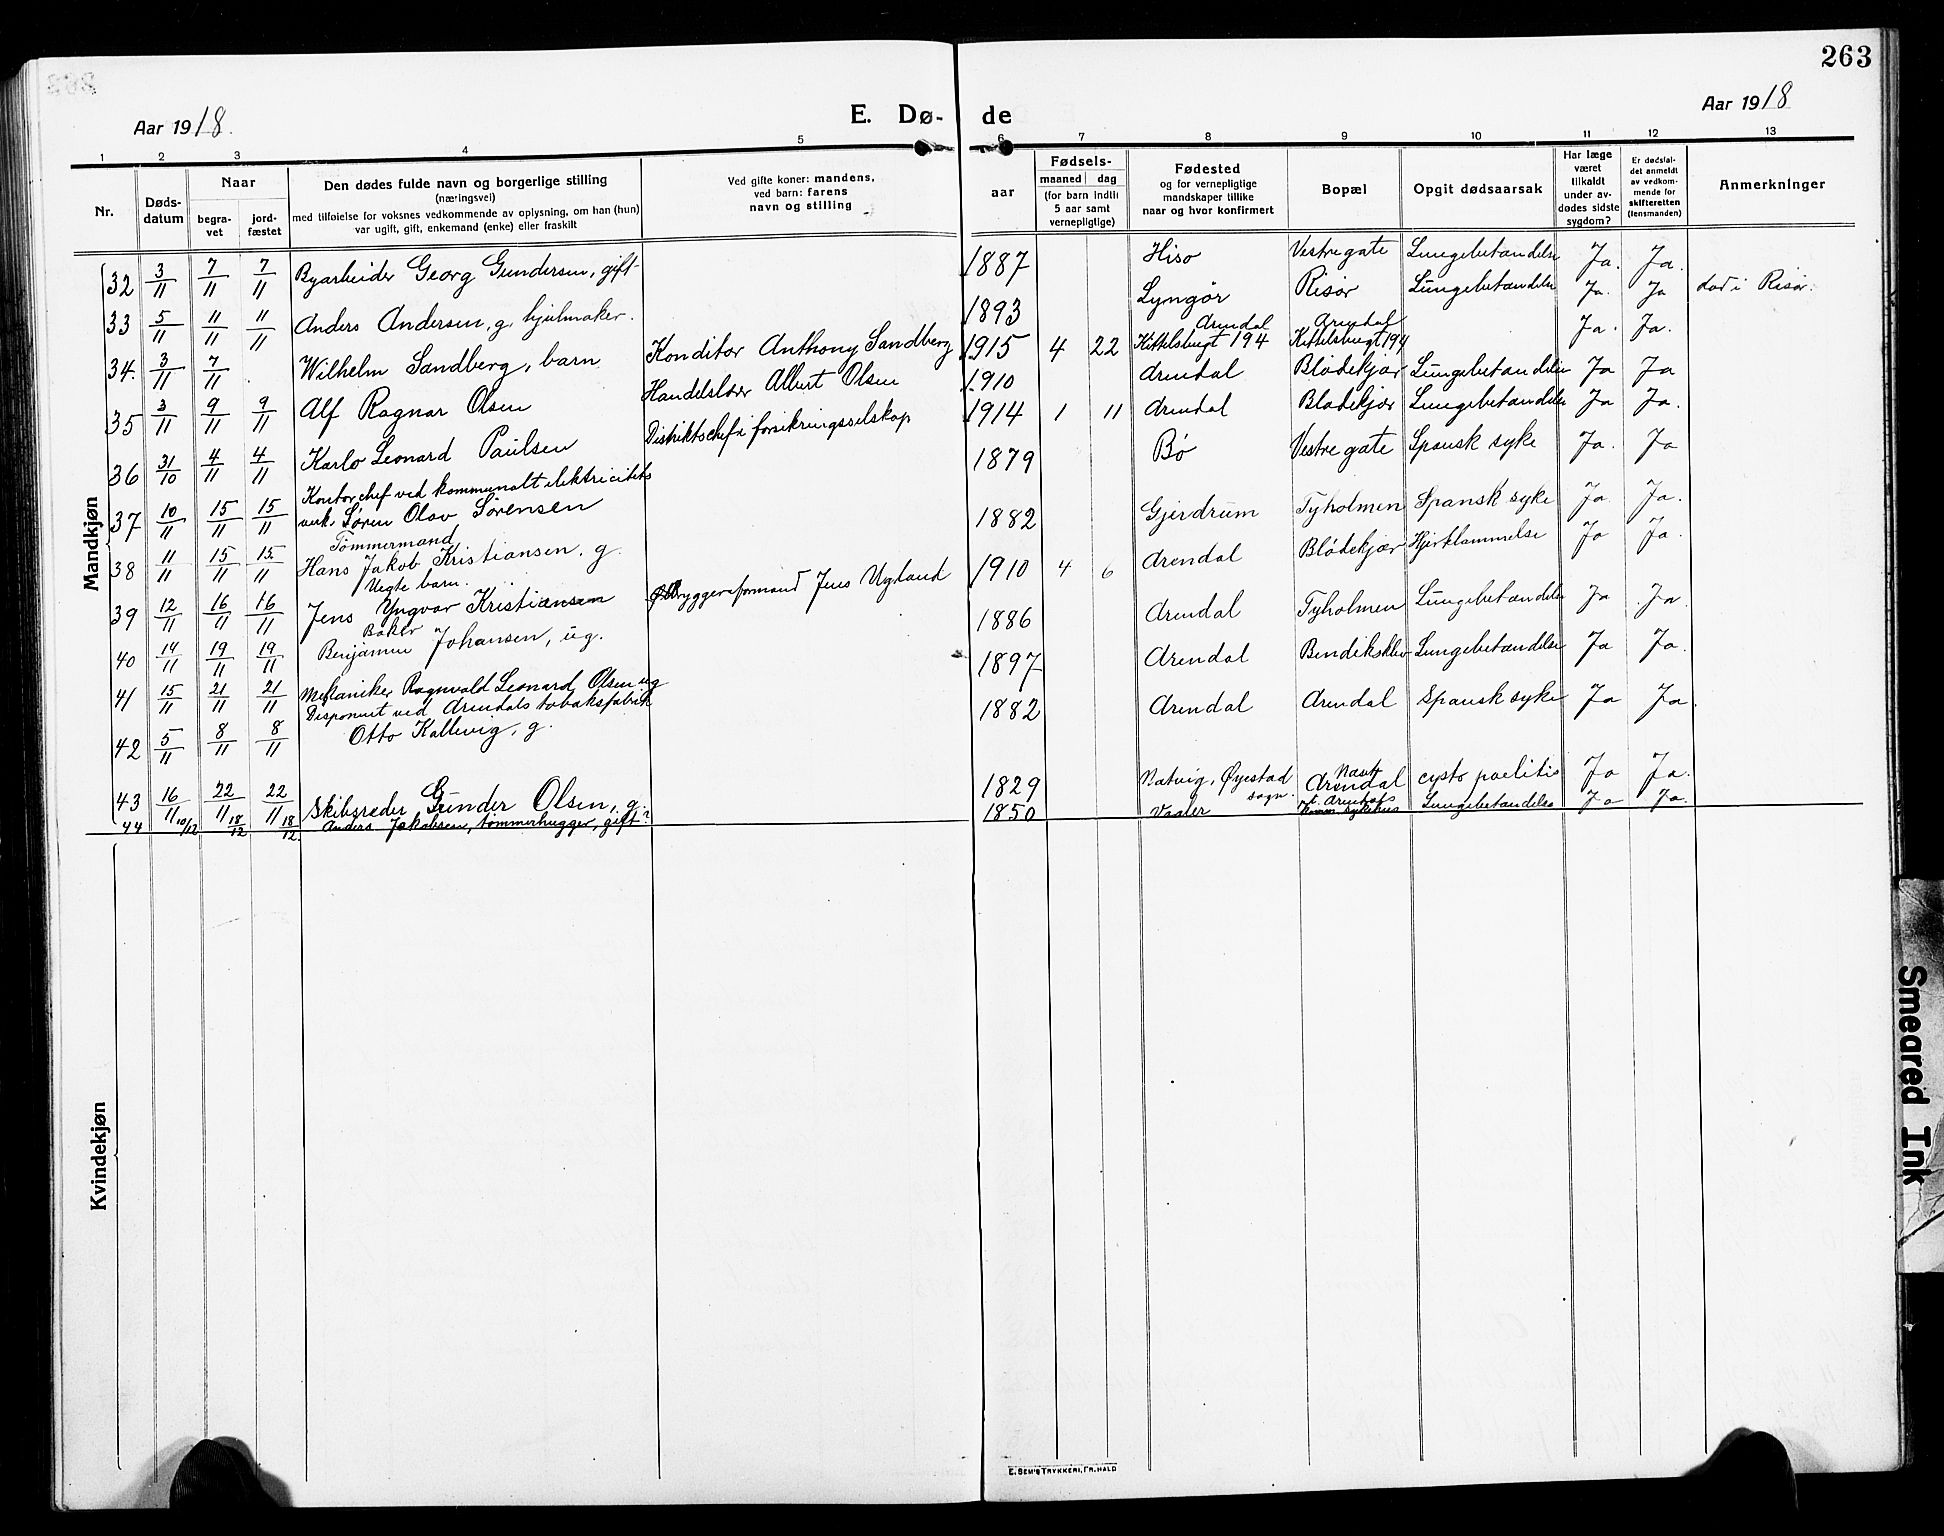 263
Aar 1918.
E. Dø-
de
Aar 1918
1 2 3 4 5 6 7 8 9 10 11 12 13
Nr.
Døds-
datum
Naar
begra-
vet
jord-
fæstet
Den dødes fulde navn og borgerlige stilling
(næringsvei)
med tilføielse for voksnes vedkommende av oplysning, om han (hun)
var ugift, gift, enkemand (enke) eller fraskilt
Ved gifte koner: mandens,
ved barn: farens
navn og stilling
aar
Fødsels-
maaned dag
(for barn indtil
5 aar samt
vernepligtige)
Fødested
og for vernepligtige
mandskaper tillike
naar og hvor konfirmert
Bopæl
Opgit dødsaarsak
Har læge
været
tilkaldt
under av-
dødes sidste
sygdom?
Er dødsfal-
det anmeldt
av vedkom-
mende for
skifteretten
(lensmanden)
Anmerkninger
Mandkjøn
32 3/11 7/11 7/11 Byarbeider Georg Gundersen, gift 1887 Hisø Vestregate Lungebetændelse Ja. Ja.
33 5/11 11/11 11/11 Anders Andersen, g. hjulmaker. 1893 Lyngør Risør Lungebetændelse Ja. Ja død i Risør.
34. 3/11 7/11 Wilhelm Sandberg, barn Konditor Anthony Sandberg 1915 4 22 Arendal Kittelsbugt 194 Arendal Kittelsbugt 194 Ja. Ja.
35 3/11 9/11 9/11 Alf Ragnar Olsen Handelslærer Albert Olsen 1910 Arendal Blødekjær Lungebetændelse Ja Ja
36 31/10 4/11 4/11 Karlo Leonard Paulsen Distriktschef i forsikringsselskap 1914 1 11 Arendal Blødekjær Lungebetændelse Ja Ja.
37 10/11 15/11 15/11 Kontorchef ved kommunalt elektricitets
verk. Søren Olav Sørensen 1879 Bø Vestregate Spansk syke Ja. Ja
38 11/11 15/11 15/11 Tømmermand
Hans Jakob Kristiansen. g. 1882 Gjerdrum Tyholmen Spansk syke Ja Ja.
39 12/11 16/11 16/11 Uegte barn.
Jens Yngvar Kristiansen Ølbryggeriformand Jens Ugland 1910 4 6 Arendal Blødekjær Hjerklammelse Ja Ja.
40 14/11 19/11 19/11 Baker
Benjamin Johansen, ug. 1886 Arendal Tyholmen Lungebetændelse Ja Ja
41 15/11 21/11 21/11 Mekaniker Ragnvald Leonard Olsen ug 1897 Arendal Bendiksklev Lungebetændelse Ja Ja.
42 5/11 8/11 8/11 Disponent ved Arendals tobaksfabrik
Otto Kallevig, g. 1882 Arendal Arendal Spansk syke Ja Ja
43 16/11 22/11 22/11 Skibsreder Gunder Olsen, g. 1829 Natvig, Øyestad sogn. Arendal cysto paelitis Ja Ja.
44 10/12 18/12 18/12. Anders Jakobsen, tømmerhugger, gift? 1850 Vaaler Arendals komm. sykehus Lungebetændelse Ja Ja.
Kvindekjøn
E. SEM'S TRYKKERI, FR.HALD
Smeared Ink